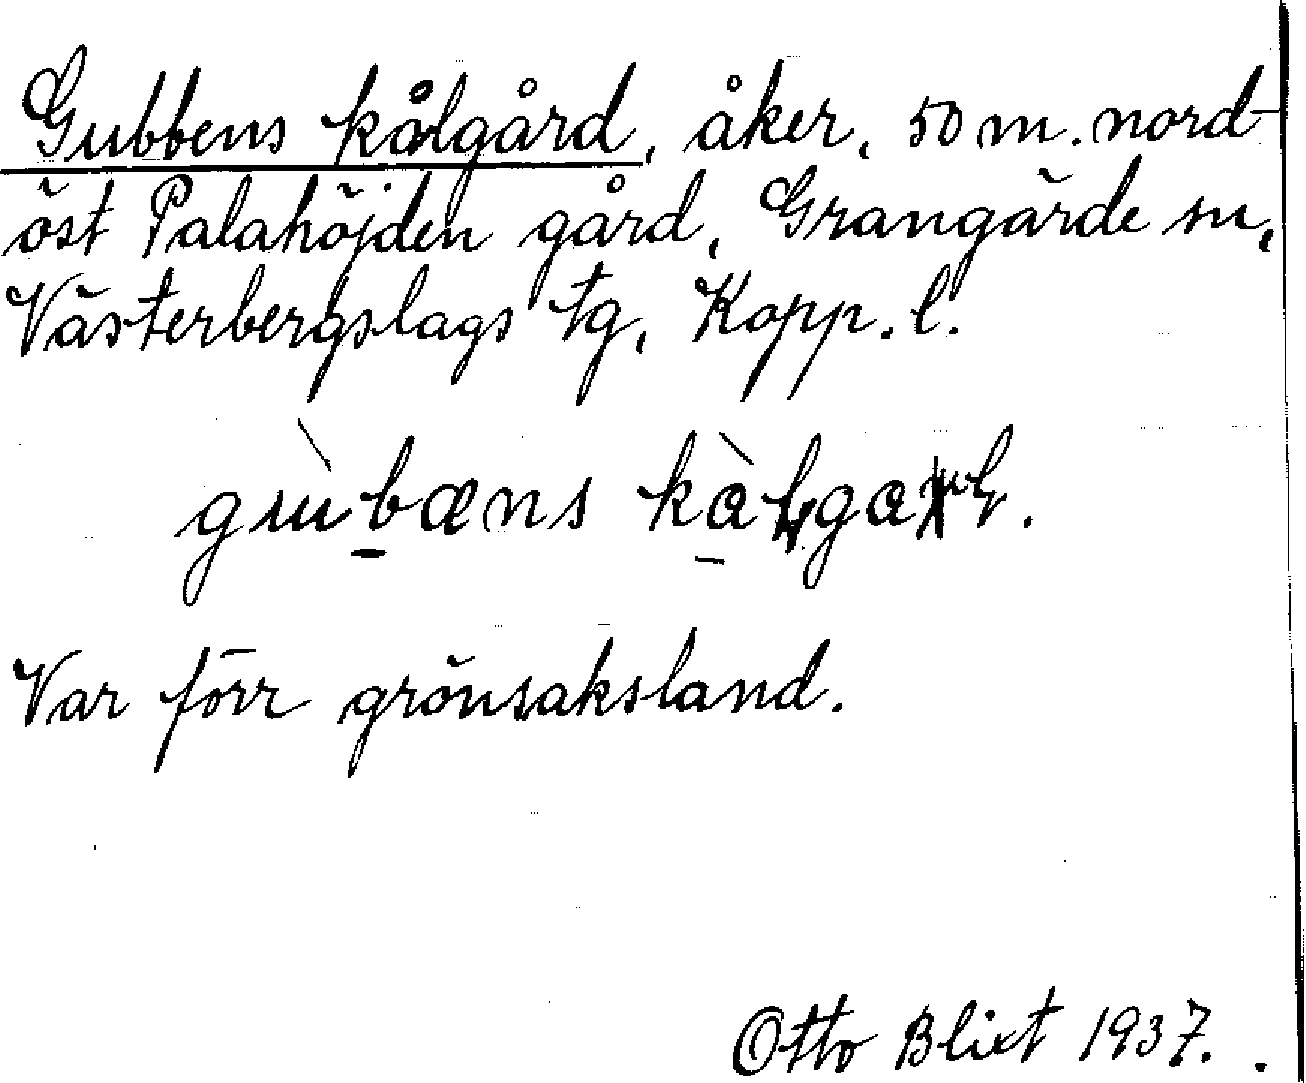 Gubbens kålgård, åker, 50 m. nord-
öst Palahöjden gård, Grangärde sn,
Västerbergslags tg, Kopp. l.
Var förr grönsaksland.
Otto Blixt 1937.